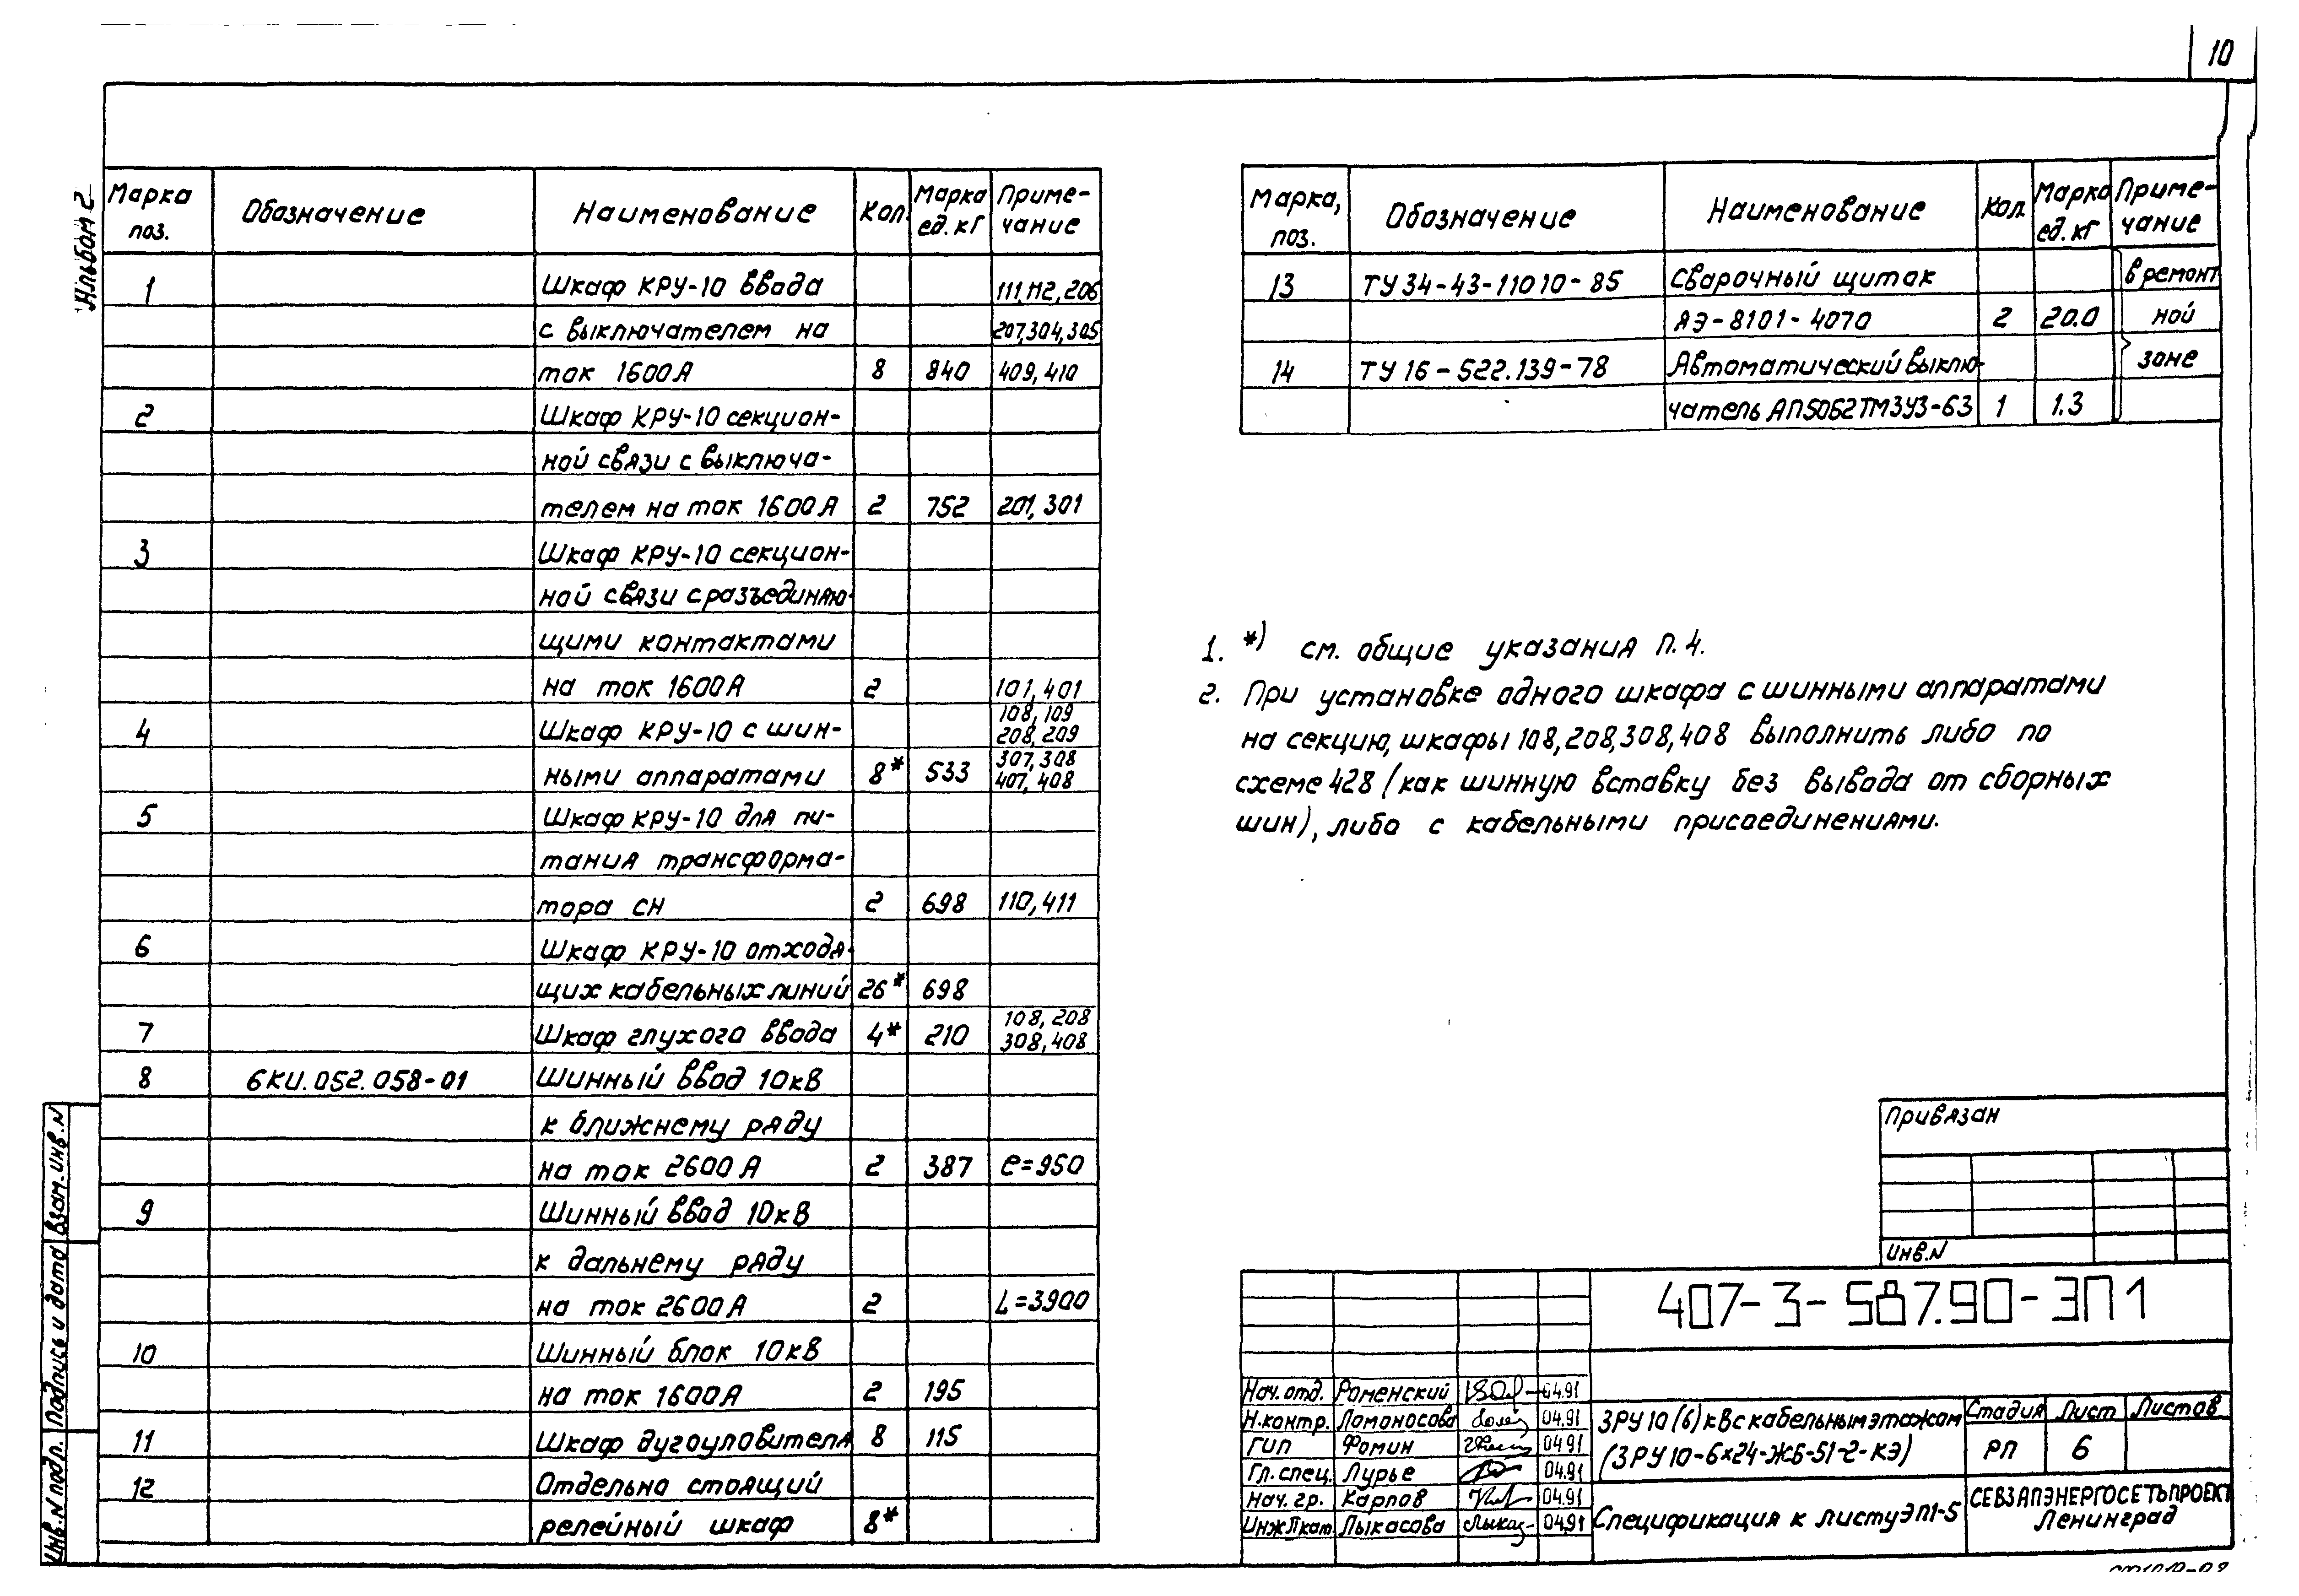 10
Альбом 2
Марка поз. Обозначение Наименование Кол. Марка ед. кг Приме-чание
1 Шкаф КРУ-10 ввода 111,112,206
с выключателем на 207,304,305
ток 1600А 8 840 409,410
2 Шкаф КРУ-10 секцион-
ной связи с выключа-
телем на ток 1600А 2 752 201,301
3 Шкаф КРУ-10 секцион-
ной связи с разъединяю-
щими контактами
на ток 1600А 2 101,401
4 Шкаф КРУ-10 с шин- 108,109 208,209
ными аппаратами 8* 533 307,308 407,408
5 Шкаф КРУ-10 для пи-
тания трансформа-
тора СН 2 698 110,411
6 Шкаф КРУ-10 отходя-
щих кабельных линий 26* 698
7 Шкаф глухого ввода 4* 210 108,208 308,408
8 6КИ.052.058-01 Шинный ввод 10кВ
к ближнему ряду
на ток 2600А 2 387 e=950
9 Шинный ввод 10кВ
к дальнему ряду
на ток 2600А 2 L=3900
10 Шинный блок 10кВ
на ток 1600А 2 195
11 Шкаф дугоуловителя 8 115
12 Отдельно стоящий
релейный шкаф 8*
Марка, поз. Обозначение Наименование Кол. Марка ед. кг Приме-чание
13 ТУ34-43-11010-85 Сварочный щиток в ремонт
ЯЭ-8101-4070 2 20.0 ной
14 ТУ16-522.139-78 Автоматический выклю- зоне
чатель АП50Б2ТМ3У3-63 1 1.3
1. *) см. общие указания п.4.
2. При установке одного шкафа с шинными аппаратами
на секцию, шкафы 108,208,308,408 выполнить либо по
схеме 428 (как шинную вставку без вывода от сборных
шин), либо с кабельными присоединениями.
Привязан
Инв.N
407-3-587.90-ЭП1
Нач. отд. Роменский 04.91
Н.контр. Ломоносова 04.91
ГИП Фомин 04.91
Гл. спец. Лурье 04.91
Нач. гр. Карпов 04.91
Инж IIкат. Лыкасова 04.91
ЗРУ10(6)кВ с кабельным этажом
(ЗРУ10-6х24-ЖБ-51-2-КЭ)
Стадия Лист Листов
РП 6
Спецификация к листу ЭП1-5
СЕВЗАПЭНЕРГОСЕТЬПРОЕКТ
Ленинград
Инв. N подл. Подпись и дата Взам. инв. N